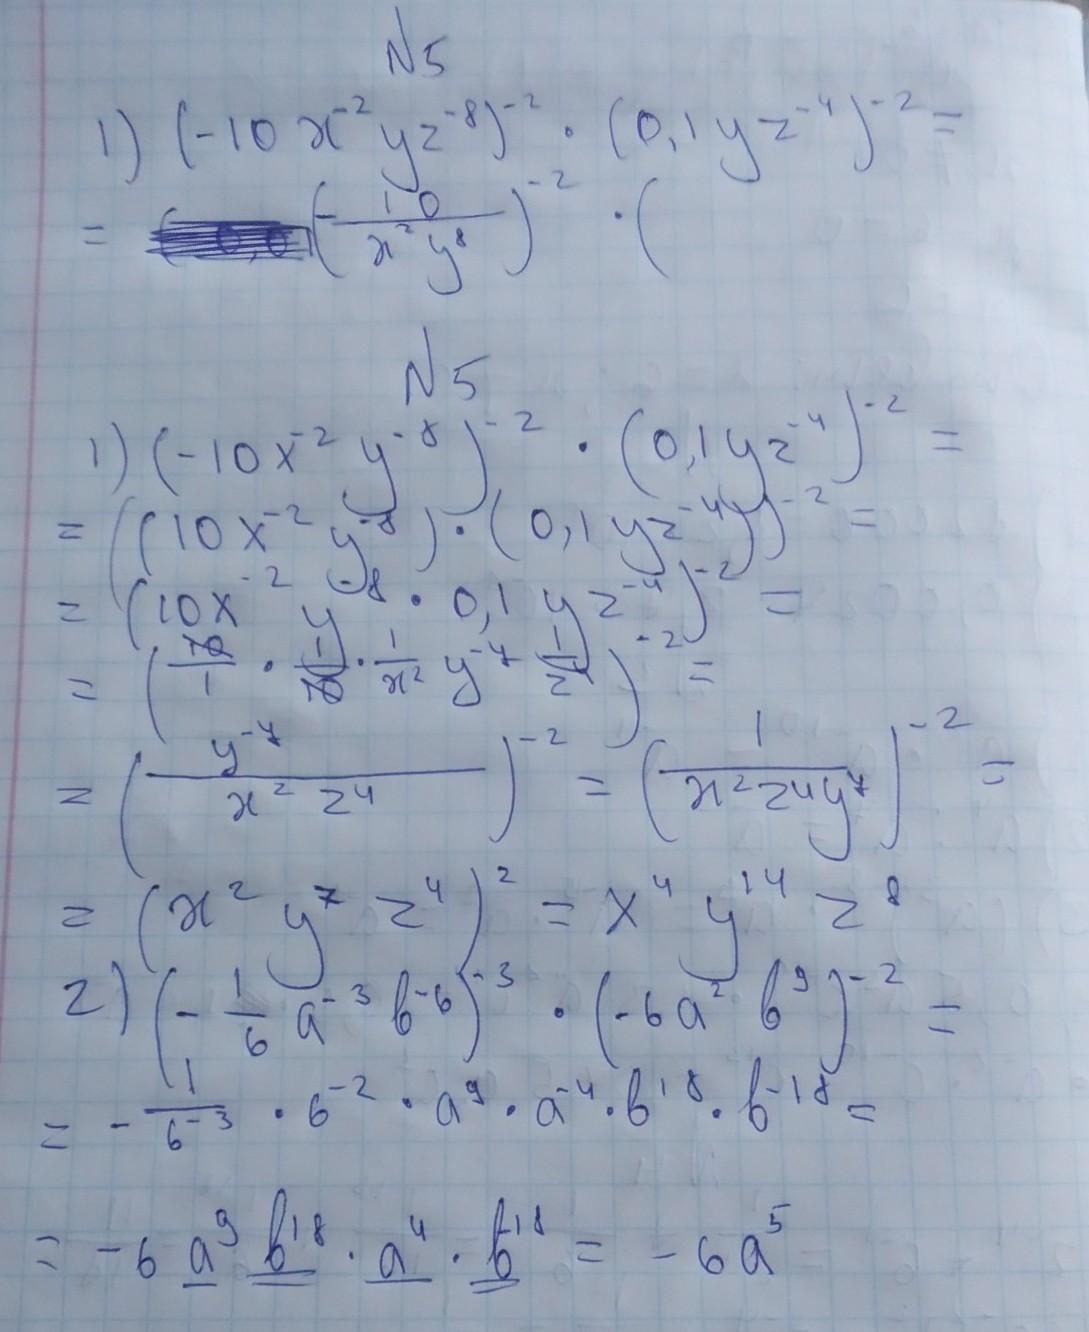 N5
1) (-10x⁻²yz⁻⁸)⁻² · (0,1yz⁻⁴)⁻² =
= (-10/x²y⁸)⁻² · (
N5
1) (-10x⁻² y⁻⁸)⁻² · (0,1yz⁻⁴)⁻² =
= ((10x⁻² y⁻⁸) · (0,1yz⁻⁴))⁻² =
= (10x⁻² y⁻⁸ · 0,1 yz⁻⁴)⁻² =
= (10/1 · 1/10 · 1/x² y⁻⁷ 1/z⁴)⁻² =
= (y⁻⁷/x² z⁴)⁻² = (1/x²z⁴y⁷)⁻² =
= (x² y⁷ z⁴)² = x⁴ y¹⁴ z⁸
2) (-1/6 a⁻³ b⁻⁶)⁻³ · (-6a² b⁹)⁻² =
= -1/6⁻³ · 6⁻² · a⁹ · a⁻⁴ · b¹⁸ · b⁻¹⁸ =
= -6 a⁹ b¹⁸ · a⁴ · b⁻¹⁸ = -6a⁵